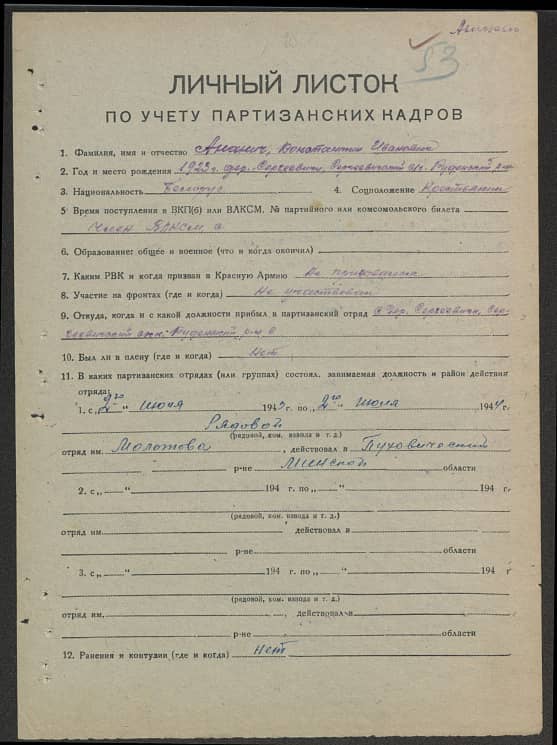 53
ЛИЧНЫЙ ЛИСТОК
ПО УЧЕТУ ПАРТИЗАНСКИХ КАДРОВ
1. Фамилия, имя и отчество Ананич, Константин Иванович
2. Год и место рождения 1923 г. дер. Сергеевичи, Сергеевический с/с. Руденский р-н
3. Национальность Белорус 4. Соцположение Крестьянин
5. Время поступления в ВКП(б) или ВЛКСМ, № партийного или комсомольского билета
Член ВЛКСМ
6. Образование: общее и военное (что и когда окончил)
7. Каким РВК и когда призван в Красную Армию Не призывался
8. Участие на фронтах (где и когда) Не участвовал
9. Откуда, когда и с какой должности прибыл в партизанский отряд с дер. Сергеевичи, Сер-
Руденский р-н
10. Был ли в плену (где и когда) Нет
11. В каких партизанских отрядах (или группах) состоял, занимаемая должность и район действия
отряда:
1. с „2го“ июня 1943 г. по „2го“ июля 1944 г.
Рядовой
(рядовой, ком. взвода и т. д.)
отряд им. Молотова, действовал в Пуховический
р-не Минской области
2. с „ “ 194 г. по „ “ 194 г.
(рядовой, ком. взвода и т. д.)
отряд им. действовал в
р-не области
3. с „ “ 194 г. по „ “ 194 г
(рядовой, ком. взвода и т. д.)
отряд им. действовал в
р-не области
12. Ранения и контузии (где и когда) Нет